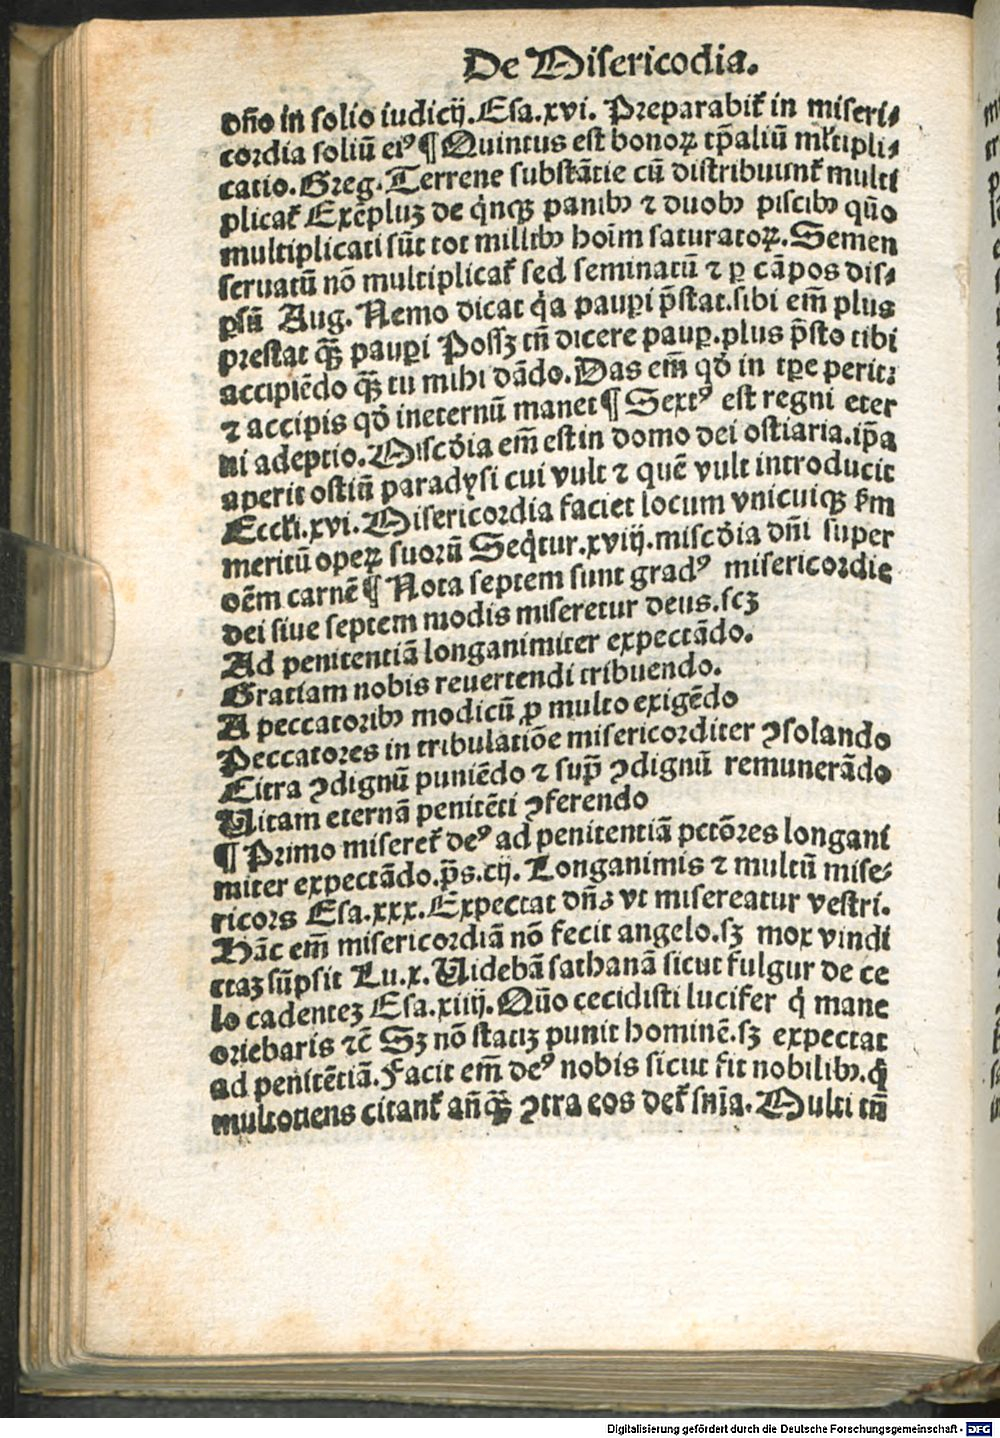 De Misericodia.
dn̄o in solio iudicij. Esa.xvi. Preparabit᷑ in miseri⸗
cordia soliū eiꝰ ¶ Quintus est bonoꝝ tp̄aliū ml̓tipli⸗
catio. Greg. Terrene substātie cū distribuunt᷑ multi
plicat᷑ Exēpluꝫ de q̇nqꝫ panibꝫ ⁊ duobꝫ piscibꝫ qūo
multiplicati sūt tot millibꝫ hoim̄ saturatoꝝ. Semen
seruatū nō multiplicat᷑ sed seminatū ⁊ ꝑ cāpos dis⸗
ꝑsū Aug. Nemo dicat q̇a pauꝑi p̄stat. sibi em̄ plus
prestat qꝫ̄ pauꝑi Possꝫ tn̄ dicere pauꝑ. plus p̄sto tibi
accipiēdo qꝫ̄ tu mihi dādo. Das em̄ qđ in tꝑe perit:
⁊ accipis qđ ineternū manet ¶ Sextꝰ est regni eter
ni adeptio. Misc̄dia em̄ est in domo dei ostiaria. ip̄a
aperit ostiū paradysi cui vult ⁊ quē vult introducit
Eccl̓i.xvi. Misericordia faciet locum vnicuiqꝫ s̄m
meritū opeꝝ suorū Seq̇tur.xviij. misc̄dia dn̄i super
oēm carnē ¶ Nota septem sunt gradꝰ misericordie
dei siue septem modis miseretur deus. scꝫ
Ad penitentiā longanimiter expectādo.
Gratiam nobis reuertendi tribuendo.
A peccatoribꝫ modicū ꝓ multo exigēdo
Peccatores in tribulatiōe misericorditer ꝯsolando
Citra ꝯdignū puniēdo ⁊ sup̄ ꝯdignū remunerādo
Uitam eternā penitēti ꝯferendo
¶ Primo miseret᷑ deꝰ ad penitentiā pctōres longani
miter expectādo. p̄s.cij. Longanimis ⁊ multū mise⸗
ricors Esa.xxx. Expectat dn̄s vt misereatur vestri.
Hāc em̄ misericordiā nō fecit angelo. sꝫ mox vindi
ctaꝫ sūpsit Lu.x. Uidebā sathanā sicut fulgur de ce
lo cadenteꝫ Esa.xiiij. Qūo cecidisti lucifer q̇ mane
oriebaris ⁊c̄ Sꝫ nō statiꝫ punit hominē. sꝫ expectat
ad penitētiā. Facit em̄ deꝰ nobis sicut fit nobilibꝫ. q̇
multotiens citant᷑ an̄qꝫ̄ ꝯtra eos det᷑ sn̄ia. Multi tn̄
Digitalisierung gefördert durch die Deutsche Forschungsgemeinschaft - DFG